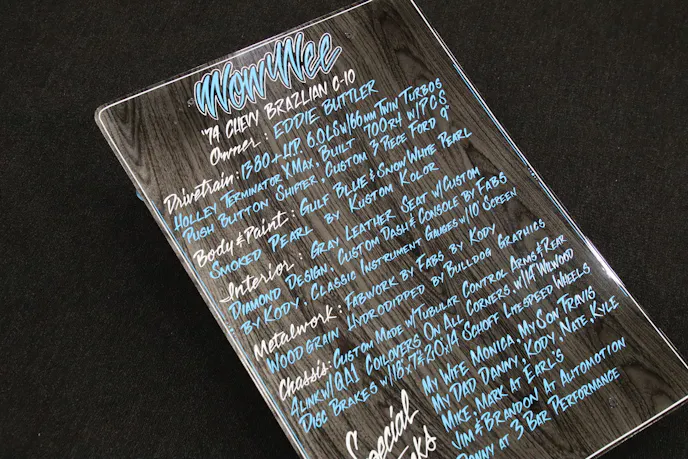 WowWee
'74 CHEVY BRAZLIAN C-10
Owner: EDDIE BUTTLER
Drivetrain: 1380+ H.P. 6.0 LS W/66MM TWIN TURBOS
HOLLEY TERMINATOR X MAX, BUILT 700R4 W/PCS
PUSH BUTTON SHIFTER, CUSTOM 3 PIECE FORD 9"
Body & Paint: GULF BLUE & SNOW WHITE PEARL
SMOKED PEARL BY KUSTOM KOLOR
Interior: GRAY LEATHER SEAT W/CUSTOM
DIAMOND DESIGN, CUSTOM DASH & CONSOLE BY FABS
BY KODY, CLASSIC INSTRUMENT GAUGES W/10 SCREEN
Metalwork: FABWORK BY FABS BY KODY
WOOD GRAIN HYDRODIPPED BY BULLDOG GRAPHICS
Chassis: CUSTOM MADE W/TUBULAR CONTROL ARMS & REAR
4 LINK W/QA1 COILOVERS ON ALL CORNERS, W/14" WILWOOD
DISC BRAKES W/18X7 & 20X14 SCHOTT LITESPEED WHEELS
Special
MY WIFE MONICA, MY SON TRAVIS
MY DAD DANNY, KODY, NATE, KYLE
MIKE, MARK AT EARL'S
JIM & BRANDON AT AUTOMOTION
DONNY AT 3 BAR PERFORMANCE